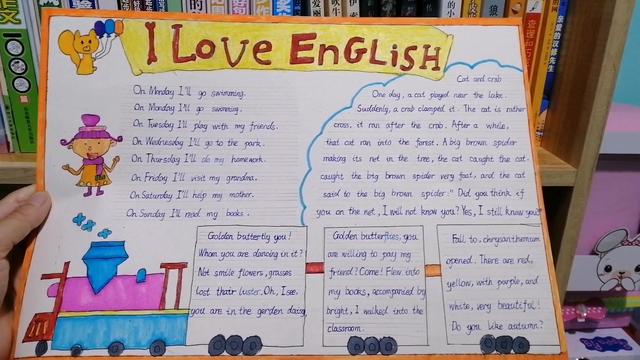 I LOVE ENGLISH
On Monday I'll go swimming.
On Monday I'll go swimming.
On Tuesday I'll play with my friends.
On Wednesday I'll go to the park.
On Thursday I'll do my homework.
On Friday I'll visit my grandma.
On Saturday I'll help my mother.
On Sunday I'll read my books.
Cat and crab
One day, a cat played near the lake.
Suddenly, a crab clamped it. The cat is rather
cross, it ran after the crob. After a while,
that cat ran into the forest. A big brown spider
making its net in the tree, the cat caught the cat.
caught the big brown spider very fast, and the cat
said to the big brown spider:" Did you think if
you on the net, I will not know you? Yes, I still know you!"
Golden butterfly you!
Whom you are dancing in it?
Not smile flowers, grasses
lost their luster. Oh, I see,
you are in the gerden daisy
Golden butterflies, you
are willing to pany my
friend? Come! Flew into
my books, accompanied by
bright, I walked into the
classroom.
Fall to, chrysanthemum
opened. There are red,
yellow, with purple, and
white, very beautiful!
Do you like autumn?